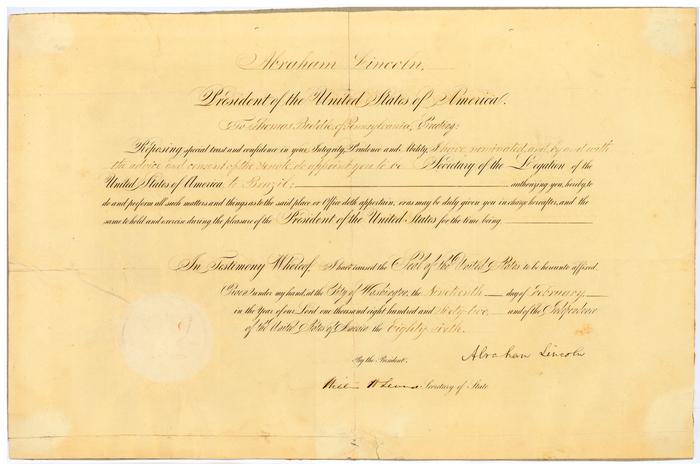 Abraham Lincoln,
President of the United States of America.
To Thomas Biddle, of Pennsylvania, Greeting:
Reposing special trust and confidence in your Integrity, Prudence and Ability, I have nominated and by and with
the advice and consent of the Senate do appoint you to be Secretary of the Legation of the
United States of America to Brazil: authorizing you, hereby to
do and perform all such matters and things as to the said place or Office doth appertain, or as may be duly given you in charge hereafter, and the
same to hold and exercise during the pleasure of the President of the United States for the time being.
In Testimony Whereof, I have caused the Seal of the United States to be hereunto affixed.
Given under my hand, at the City of Washington, the Nineteenth day of February
in the Year of our Lord one thousand eight hundred and Sixty-two and of the Independence
of the United States of America the Eighty Sixth.
By the President,
Abraham Lincoln
Secretary of State